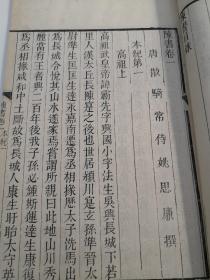 陳書卷一
唐散騎常侍姚思廉撰
本紀第一
高祖上
高祖武皇帝諱霸先字興國小字法生吳興長城下若
里人漢太丘長陳寔之後也世居潁川寔玄孫準晉太
尉準生匡匡生達永嘉南遷爲丞相掾歷太子洗馬出
爲長城令悅其山水遂家焉嘗謂所親曰此地山川秀
麗當有王者興二百年後我子孫必鍾斯運達生康復
爲丞相掾咸和中土斷故爲長城人康生盱眙太守英